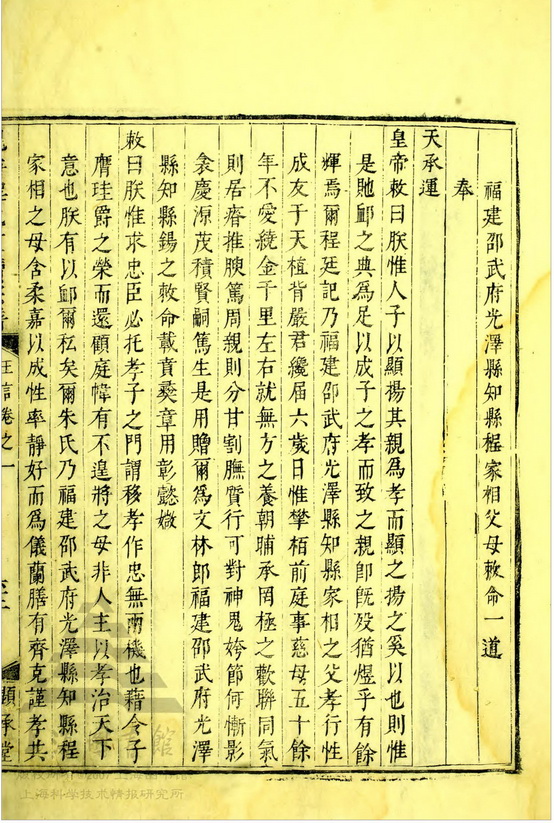 福建邵武府光澤縣知縣程家相父母敕命一道
奉
天承運
皇帝敕曰朕惟人子以顯揚其親為孝而顯之揚之奚以也則惟
是貤䘏之典為足以成子之孝而致之親卽旣歿猶煜乎有餘
輝焉爾程廷記乃福建邵武府光澤縣知縣家相之父孝行性
成友于天植背嚴君纔届六歲日惟攀栢前庭事慈母五十餘
年不愛繞金千里左右就無方之養朝晡承罔極之歡聯同氣
則居瘠推腴篤周親則分甘割膴質行可對神鬼姱節何慚影
衾慶源茂積賢嗣篤生是用贈爾為文林郎福建邵武府光澤
縣知縣錫之敕命載賁褒章用彰懿媺
敕曰朕惟求忠臣必托孝子之門謂移孝作忠無兩機也藉令子
膺珪爵之榮而還顧庭幃有不遑將之母非人主以孝治天下
意也朕有以䘏爾私矣爾朱氏乃福建邵武府光澤縣知縣程
家相之母含柔嘉以成性率靜好而為儀蘭膳有齊克謹孝共
王言卷之一
順承堂
館
上海科学技术情报研究所